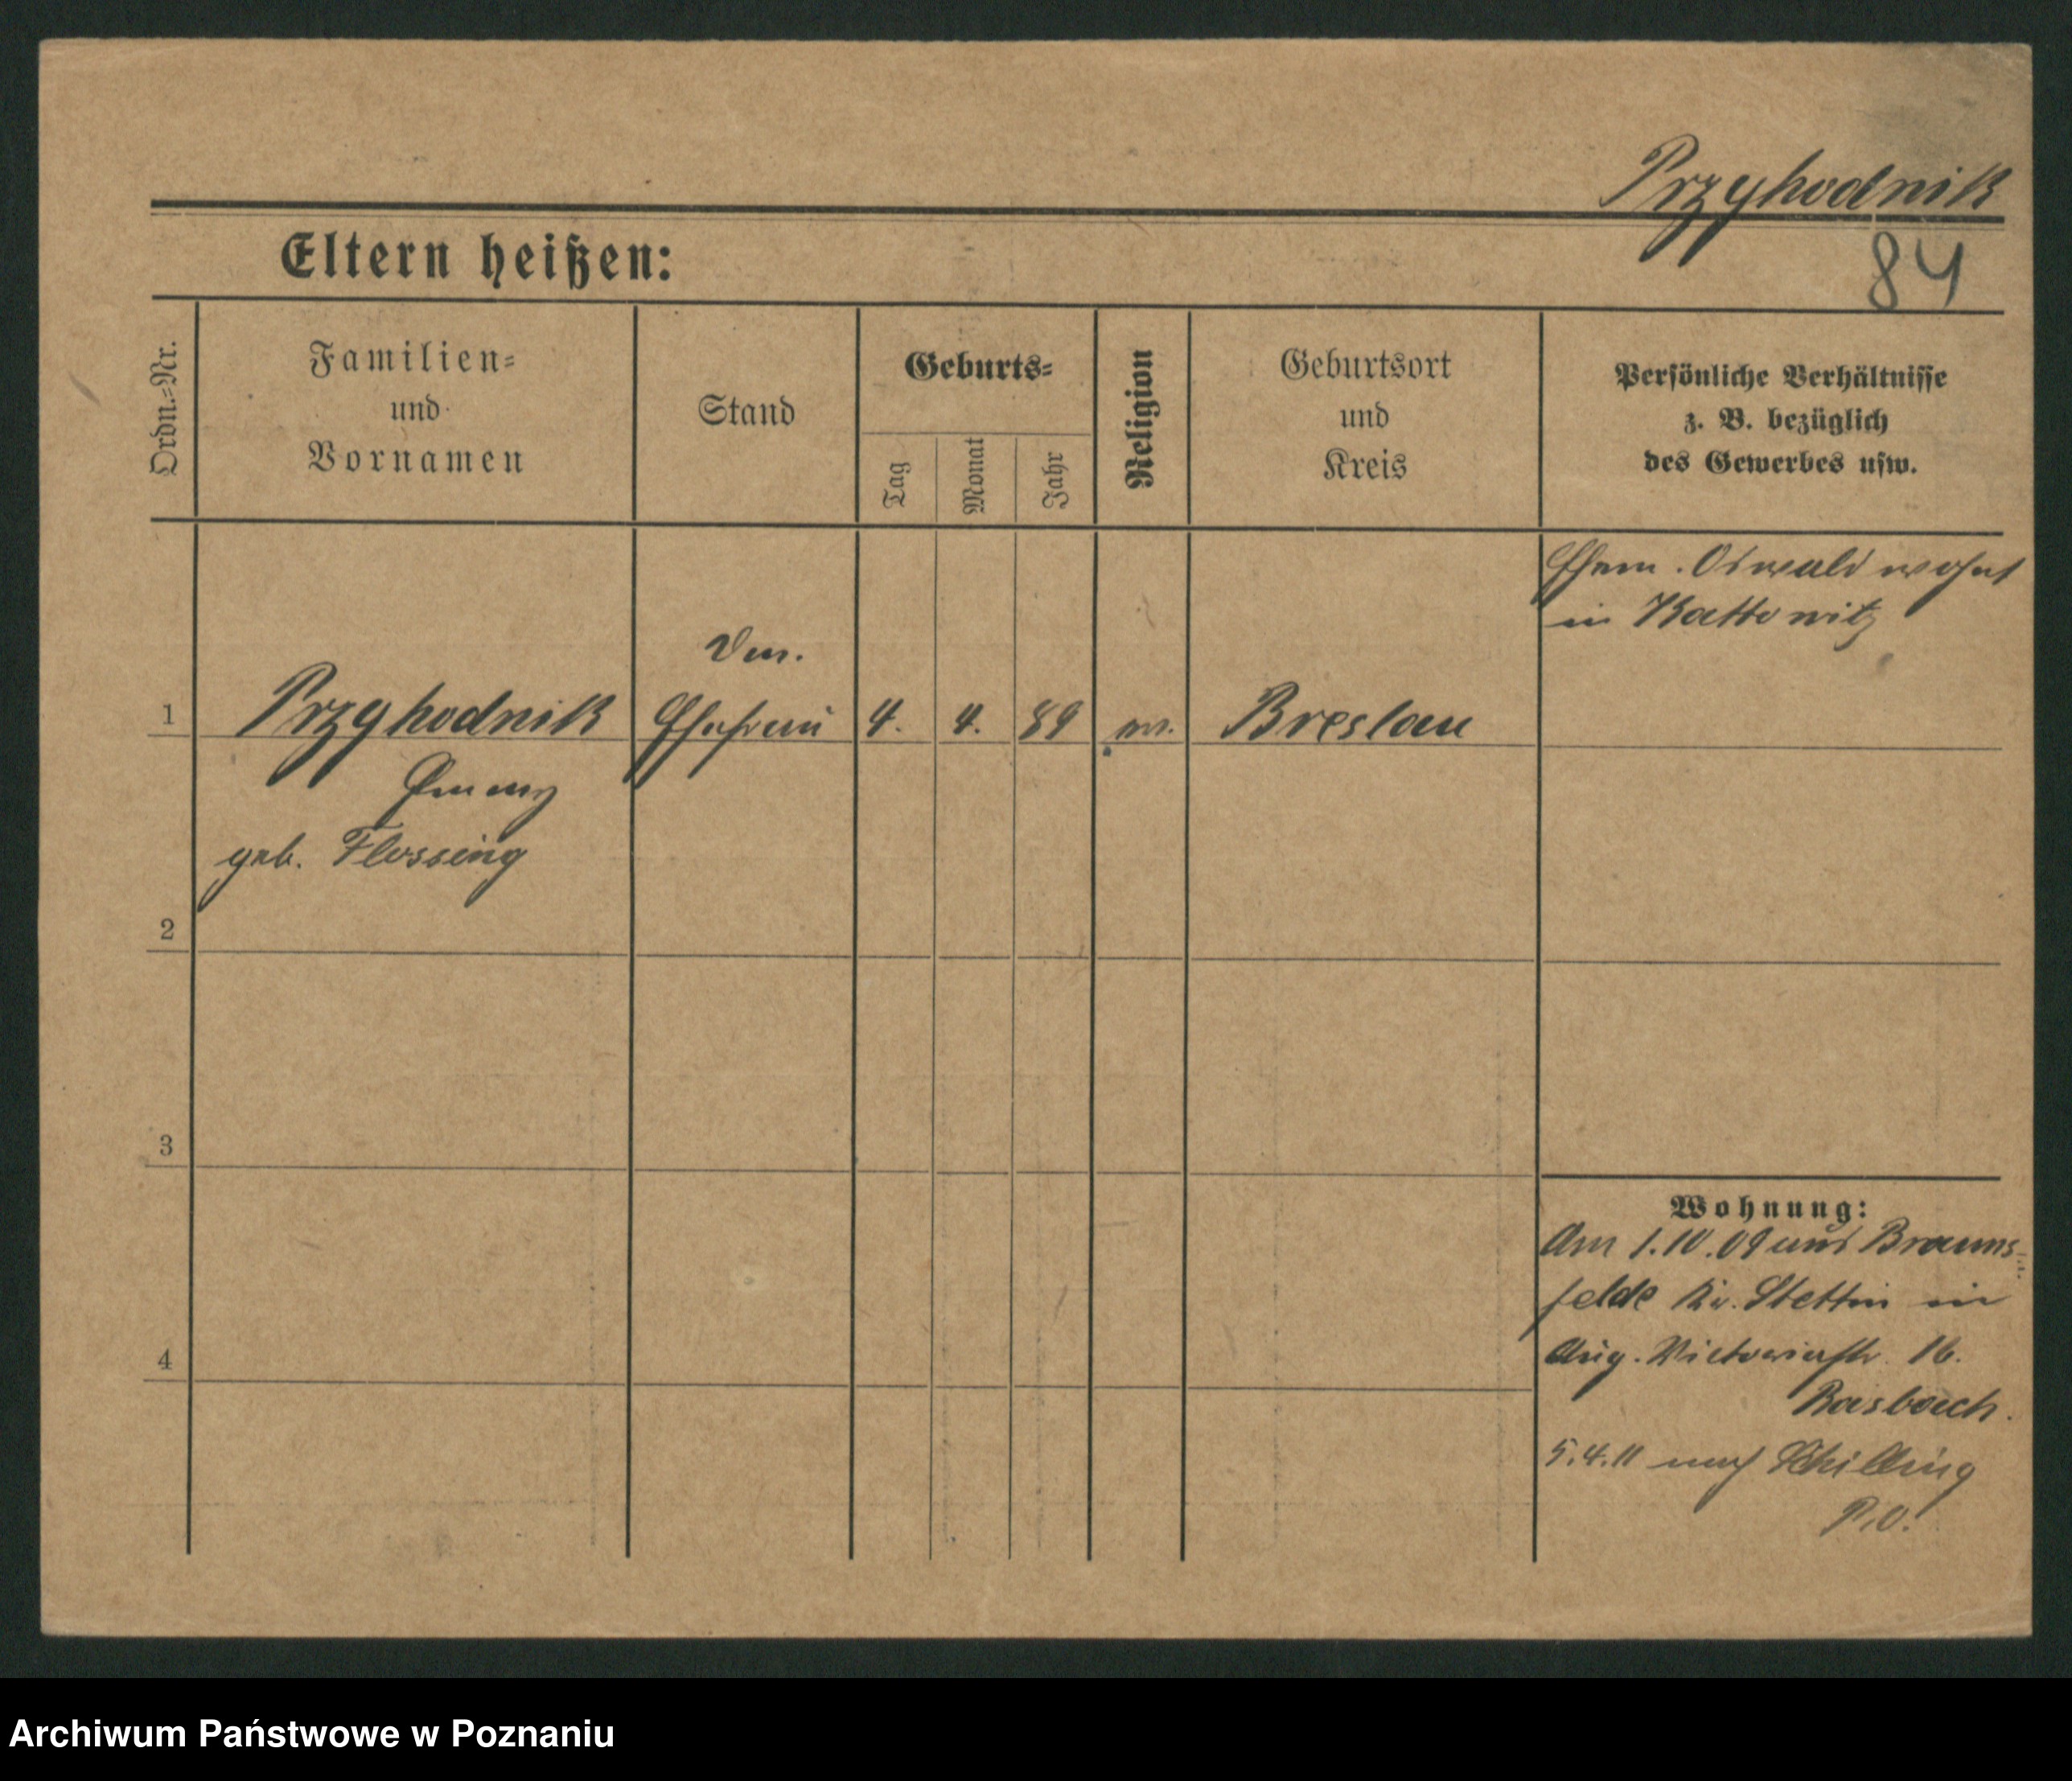 Przyhodnik
84
Eltern heißen:
Ordn.=Nr.
Familien=
und
Vornamen
Stand
Geburts=
Tag
Monat
Jahr
Religion
Geburtsort
und
Kreis
Persönliche Verhältnisse
z. B. bezüglich
des Gewerbes usw.
Ehem. Oswald wohnt
in Kattowitz
1
Przyhodnik
Ehefrau
4.
4.
89
Breslau
geb. Flossing
2
3
4
Wohnung:
Am 1.10.09 aus Brauns-
felde Kr. Stettin in
Aug. Victoriastr. 16.
Rasbach.
5.4.11 nach Schilling
P.O.
Archiwum Państwowe w Poznaniu